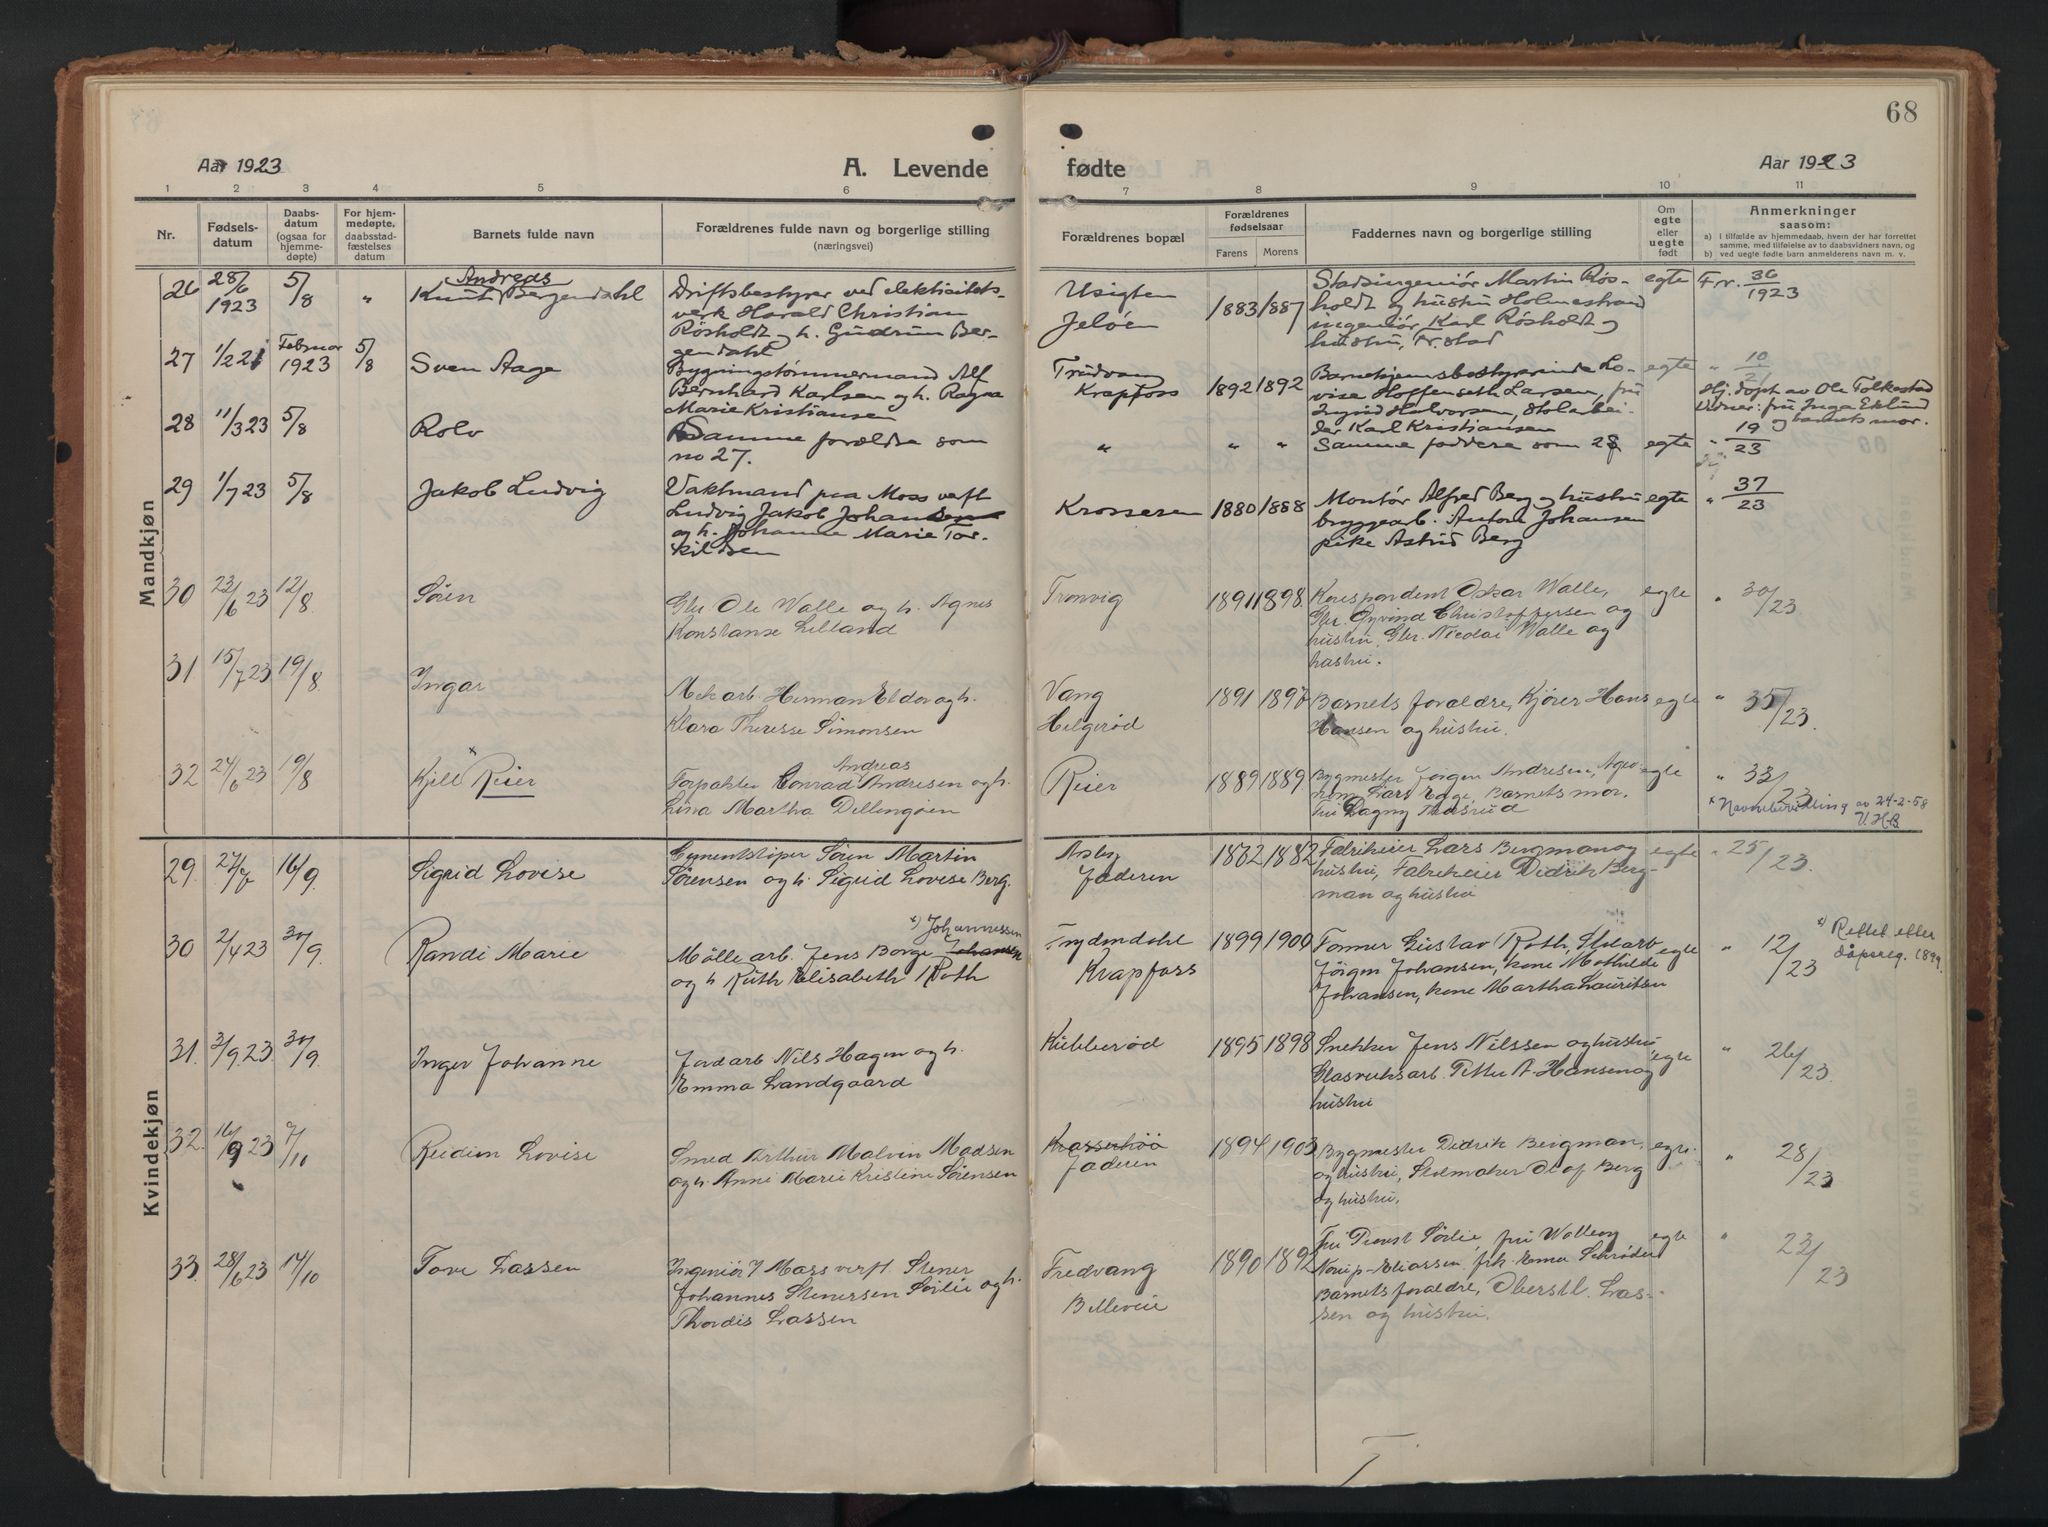 68
Aar 1923
A. Levende
fødte
Aar 1923
1 2 3 4 5 6 7 8 9 10 11
Nr.
Fødsels-
datum
Daabs-
datum
(ogsaa for
hjemme-
døpte)
For hjem-
medøpte,
daabsstad-
fæstelses
datum
Barnets fulde navn
Forældrenes fulde navn og borgerlige stilling
(næringsvei)
Forældrenes bopæl
Forældrenes
fødselsaar
Farens Morens
Faddernes navn og borgerlige stilling
Om
egte
eller
uegte
født
Anmerkninger
saasom:
a) I tilfælde av hjemmedaab, hvem der har forrettet
samme, med tilføielse av to daabsvidners navn, og
b) ved uegte fødte barn anmelderens navn m. v.
Mandkjøn
26 28/6 1923 5/8 „ Andreas
Knut Bergendahl
Driftsbestyrer ved elektricitets-
verk Harald Christian
Røsholdt og h. Gudrun Ber-
gendahl
Usigten
Jeløen
1883 1887
Stadsingeniør Martin Røs-
holdt og hustru Holmestrand
ingeniør Karl Røsholdt og
hustru, Fr.stad
egte Fr. 36/1923
27 1/2 21 Februar 1923 5/8 Sven Aage
Bygningstømmermand Alf
Bernhard Karlsen og h. Ragna
Marie Kristiansen
Trudvang
Krapfoss
1892 1892
Barnehjemsbestyrerinde Lo-
vise Hoffenseth Larsen, fru
Ingrid Halvorsen, Stolarbei-
der Karl Kristiansen
egte „ 10/21
Hj. døpt av Ole Folkestad
Vidner: fru Inga Eklund
og barnets mor.
28 11/3 23 5/8 Rolv
Samme forældre som
no 27.
„ „ „
Samme faddere som 27
egte „ 19/23
29 1/7 23 5/8 Jakob Ludvig
Vaktmand paa Moss verft
Ludvig Jakob Johansen
og h. Johanne Marie Tor-
kildsen
Krosseren
1880 1888
Montør Alfred Berg og hustru
bryggearb. Anton Johansen
pike Astrid Berg
egte „ 37/23
30 23/6 23 12/8 Søren
Gbr. Ole Walle og h. Agnes
Konstanse Lilland
Tronvig
1891 1898
Korespondent Oskar Walle,
Gbr. Øyvind Christoffersen og
hustru, Gbr. Nicolai Walle og
hustru.
egte „ 30/23
31 15/7 23 19/8 Ingar
Mek arb. Herman Eldor og h.
Klara Theresse Simonsen
Vang
Helgerød
1891
Barnets foraldre, Kjører Hans
Hansen og hustru.
egte „ 35/23
32 24/6 23 19/8 Kjell Reier ×
Andreas
Forpakter Conrad Andresen og h.
Lina Martha Dillingøen
Reier
1889 1889
Bygmester Jørgen Andresen, Agro-
nom Lars Ege, Barnets mor.
Fru Dagny Thasrud
egte „ 33/23
× Navneberedning av 24-2-58
V.H.B.
Kvindekjøn
29. 27/7 16/9 Sigrid Lovise
Cementstøper Søren Martin
Sørensen og h. Sigrid Lovise Berg.
Jaderen
1882
Fabrikeier Lars Bergman og
hustru, Fabrikeier Didrik Berg-
man og hustru
egte „ 25/23.
30 2/4 23 30/9 Randi Marie
×) Johannessen
Mølle arb. Jens Borge Johansen
og h Ruth Elisabeth Roth
Frydendahl
Krapfoss
1899 1900
Former Gustav Roth, Stolarb
Jørgen Johansen, kone Mathilde
Johansen, kone Martha Lauritsen
egte „ 12/23
×) Rettet etter
dåpsreg. 1899.
31. 3/9 23 30/9 Inger Johanne
Jordarb Nils Hagen og h.
Emma Landgaard
Kubberød
1895 1898
Snekker Jens Nilssen og hustru
Glasverksarb. Petter A. Hansen og
hustru
egte „ 26/23.
32. 16/9 23 7/10 Reidun Lovise
Smed Arthur Malvin Madsen
og h. Anni Marie Kristine Sørensen
Jaderen
1894 1903
Bygmester Didrik Bergman,
og hustru, Stolmaker Olof Berg
og hustru.
egte „ 28/23
33. 28/6 23 14/10 Tove Lassen
Ingeniør v/ Moss verft. Stener
Johannes Stenersen Sørlie og h.
Thordis Lassen
Fredvang
Bellevue
1890 1892
Fru Provst Sørlie, fru Walleog
Norup-Eliassen, frk. Emma Schrøder
Barnets foraldre, Oberstl. Las-
sen og hustru.
egte „ 23/23